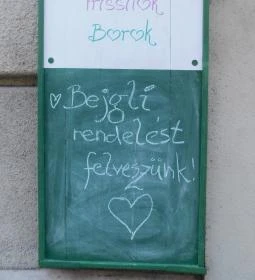 Frissítők
Borok
Bejgli
rendelést
felveszünk!